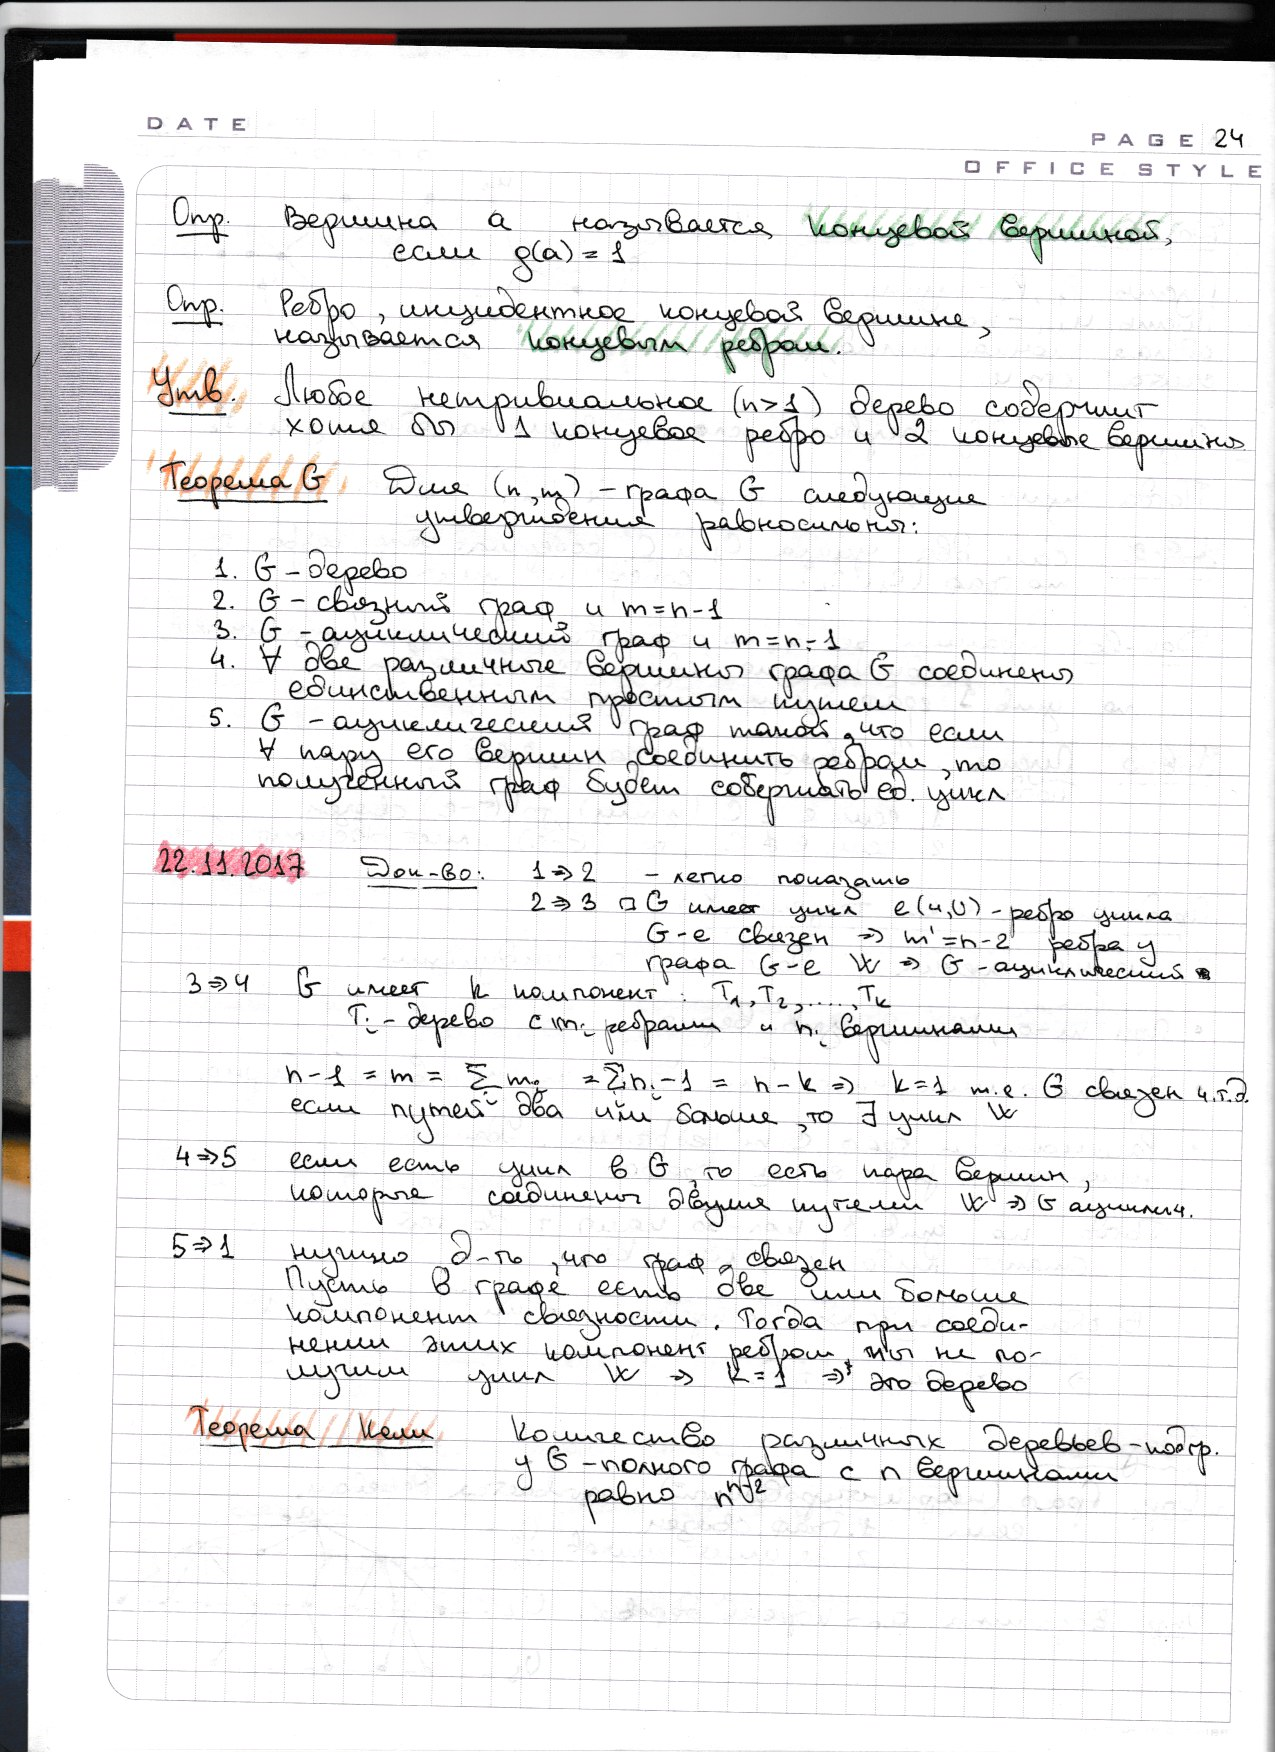 DATE
PAGE 24
OFFICE STYLE
Опр. Вершина a называется концевой вершиной,
если g(a) = 1
Опр. Ребро, инцидентное концевой вершине,
называется концевым ребром.
Утв. Любое нетривиальное (n>1) дерево содержит
хотя бы 1 концевое ребро и 2 концевые вершины
Теорема G Для (n,m) - графа G следующие
утверждения равносильны:
1. G - дерево
2. G - связный граф и m=n-1
3. G - ациклический граф и m=n-1
4. ∀ две различные вершины графа G соединены
единственным простым путем
5. G - ациклический граф такой, что если
∀ пару его вершин соединить ребром, то
полученный граф будет содержать ед. цикл
22.11.2017 Док-во: 1⇒2 - легко показать
2⇒3 □ G имеет цикл e(u,v) - ребро цикла
G-e связен ⇒ m'=n-2 ребра у
графа G-e W ⇒ G - ациклический
3⇒4 G имеет k компонент: T₁, T₂, ...., Tₖ
Tᵢ - дерево с mᵢ ребрами и nᵢ вершинами
n-1 = m = Σ mᵢ = Σ nᵢ-1 = n-k ⇒ k=1 т.е. G связен ч.т.д.
если путей два или больше, то ∃ цикл W
4⇒5 если есть цикл в G, то есть пара вершин,
которые соединены двумя путями W ⇒ G ациклич.
5⇒1 нужно д-ть, что граф связен
Пусть в графе есть две или больше
компонент связности. Тогда при соеди-
нении этих компонент ребром, мы не по-
лучим цикл W ⇒ k=1 ⇒ это дерево
Теорема Кели Количество различных деревьев-подгр.
у G - полного графа с n вершинами
равно nⁿ⁻²